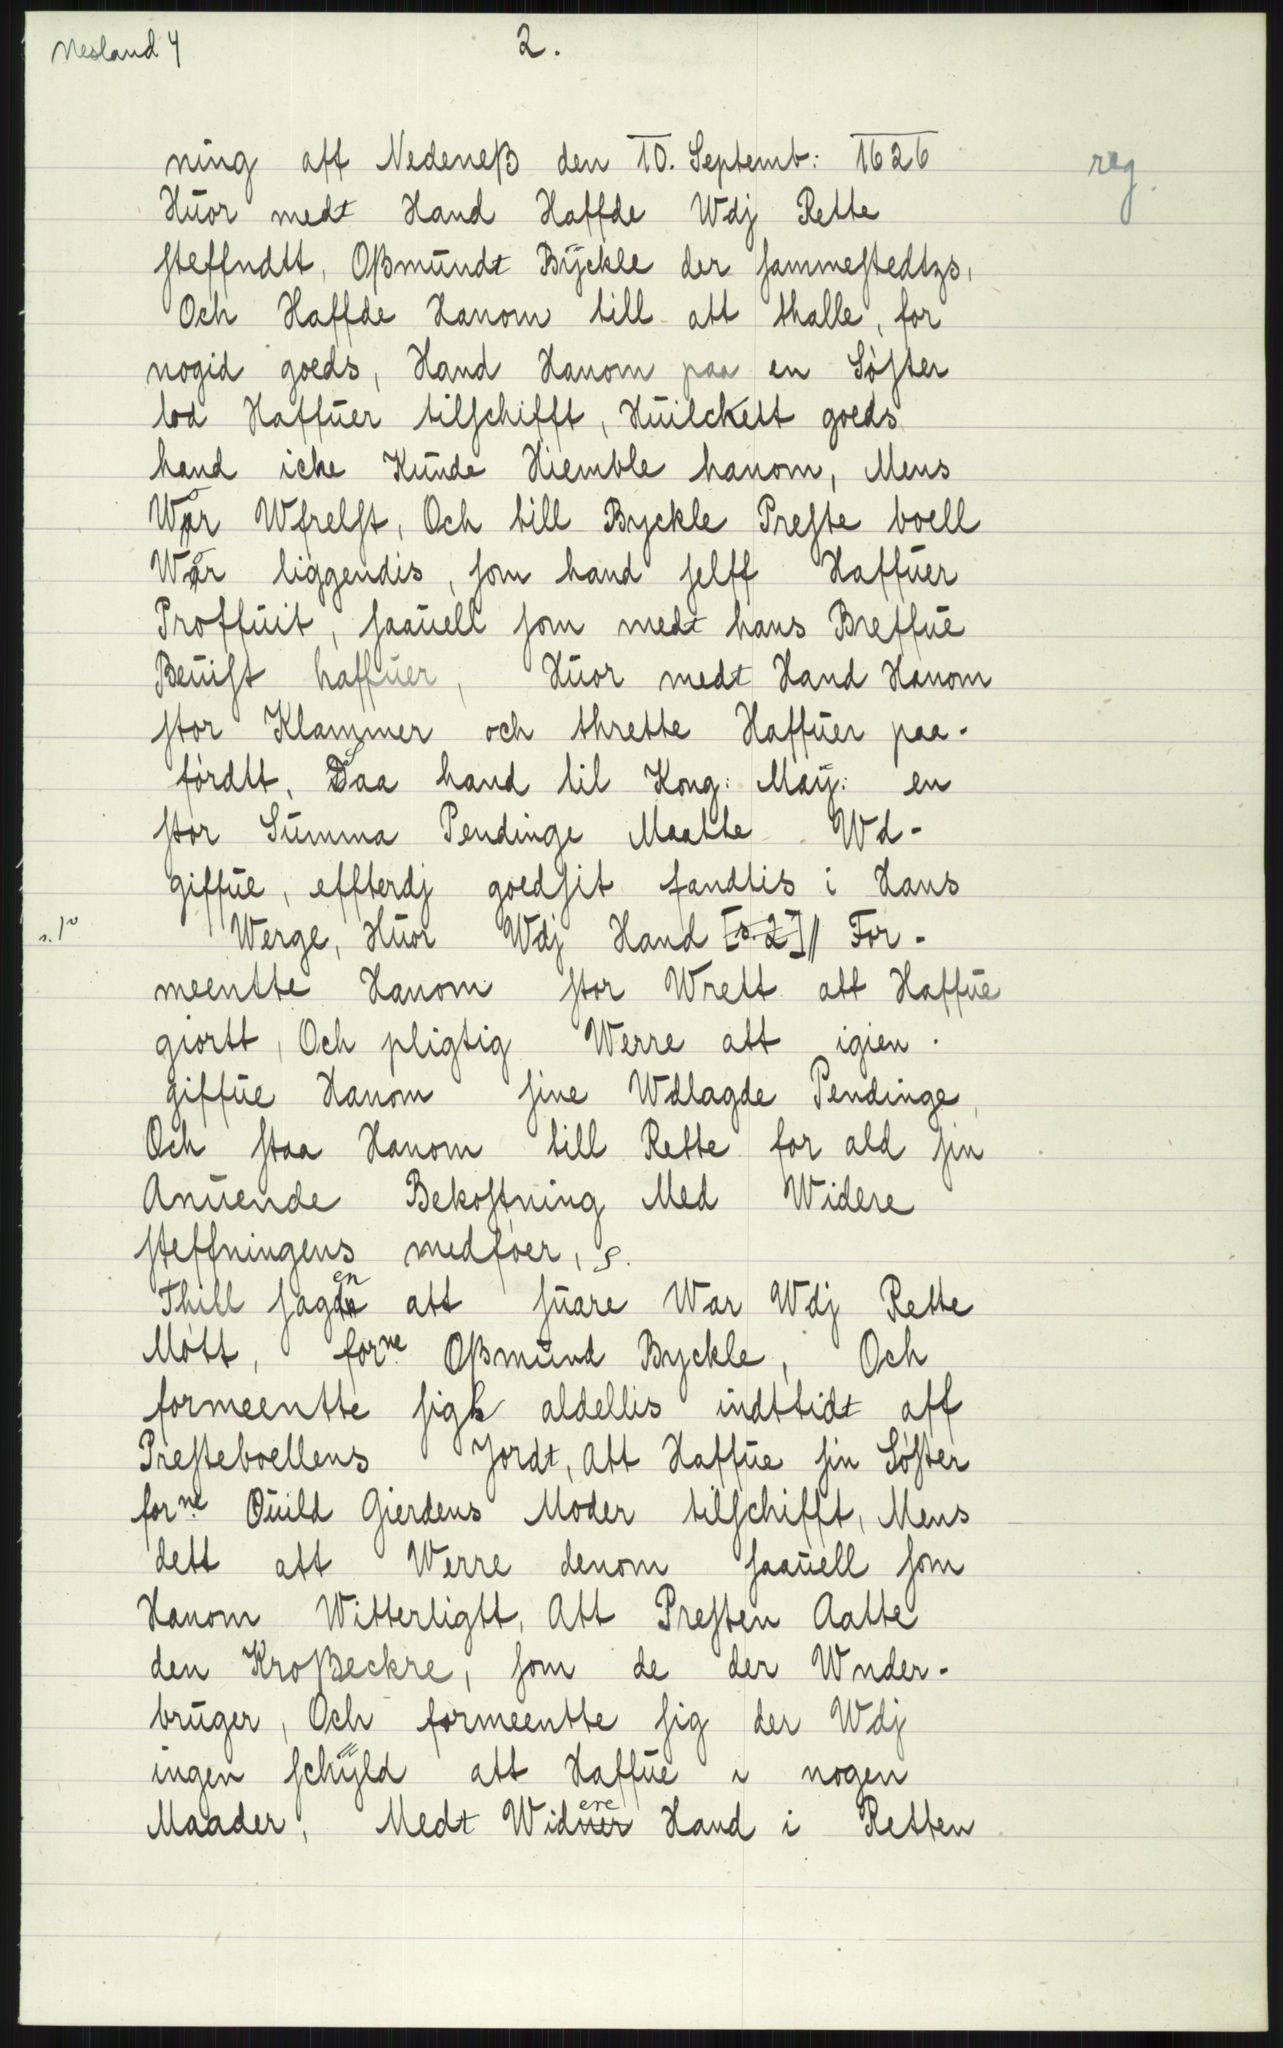 Nesland 4
2.
ning aff Nedeneß den 10. Septemb: 1626
reg.
Huor medt Hand Haffde Wdj Rette
steffndtt, Oßmundt Bÿckle der sammestedtzs,
Och Haffde Hanom till att thalle, for
nogid goeds, Hand Hanom paa en Søster
lod Haffuer tilschifft, Huilckett goeds
hand icke Kunde Hiemble hanom, Mens
War Wfrelst, Och till Byckle Preste boell
War liggendis, som hand selff Haffuer
Proffuit, saauell som medt hans Breffue
Beuist haffuer, Huor medt Hand Hanom
stor Klammer och thrette Haffuer paa-
førdtt, Saa hand til Kong: Maÿ: en
stor Summa Pendinge Maatte Wd-
giffue, effterdj goedsit fandtis i Hans
s. 1v Werge, Huor Wdj Hand [s. 2] // For-
meentte Hanom stor Wrett att Haffue
giortt, Och pligtig Werre att igien-
giffue Hanom sine Wdlagde Pendinge,
Och staa Hanom till Rette for ald sin
Anuende Bekostning Med Widere
steffningens medføer, s.
Thill sagen att suare War Wdj Rette
Møtt, forne Oßmund Byckle, Och
formeentte sigh aldellis indttidt aff
Presteboellens Jordt, Att Haffue sin Søster
forne Ouild Gierdens Moder tilschifft, Mens
dett att Werre denom saauell som
Hanom Witterligtt, Att Presten Aatte
den Kroßeckre, som de der Wnder-
bruger, Och formeentte sig der Wdj
ingen schÿld att Haffue i nogen
Maader, Medt Widere Hand i Retten